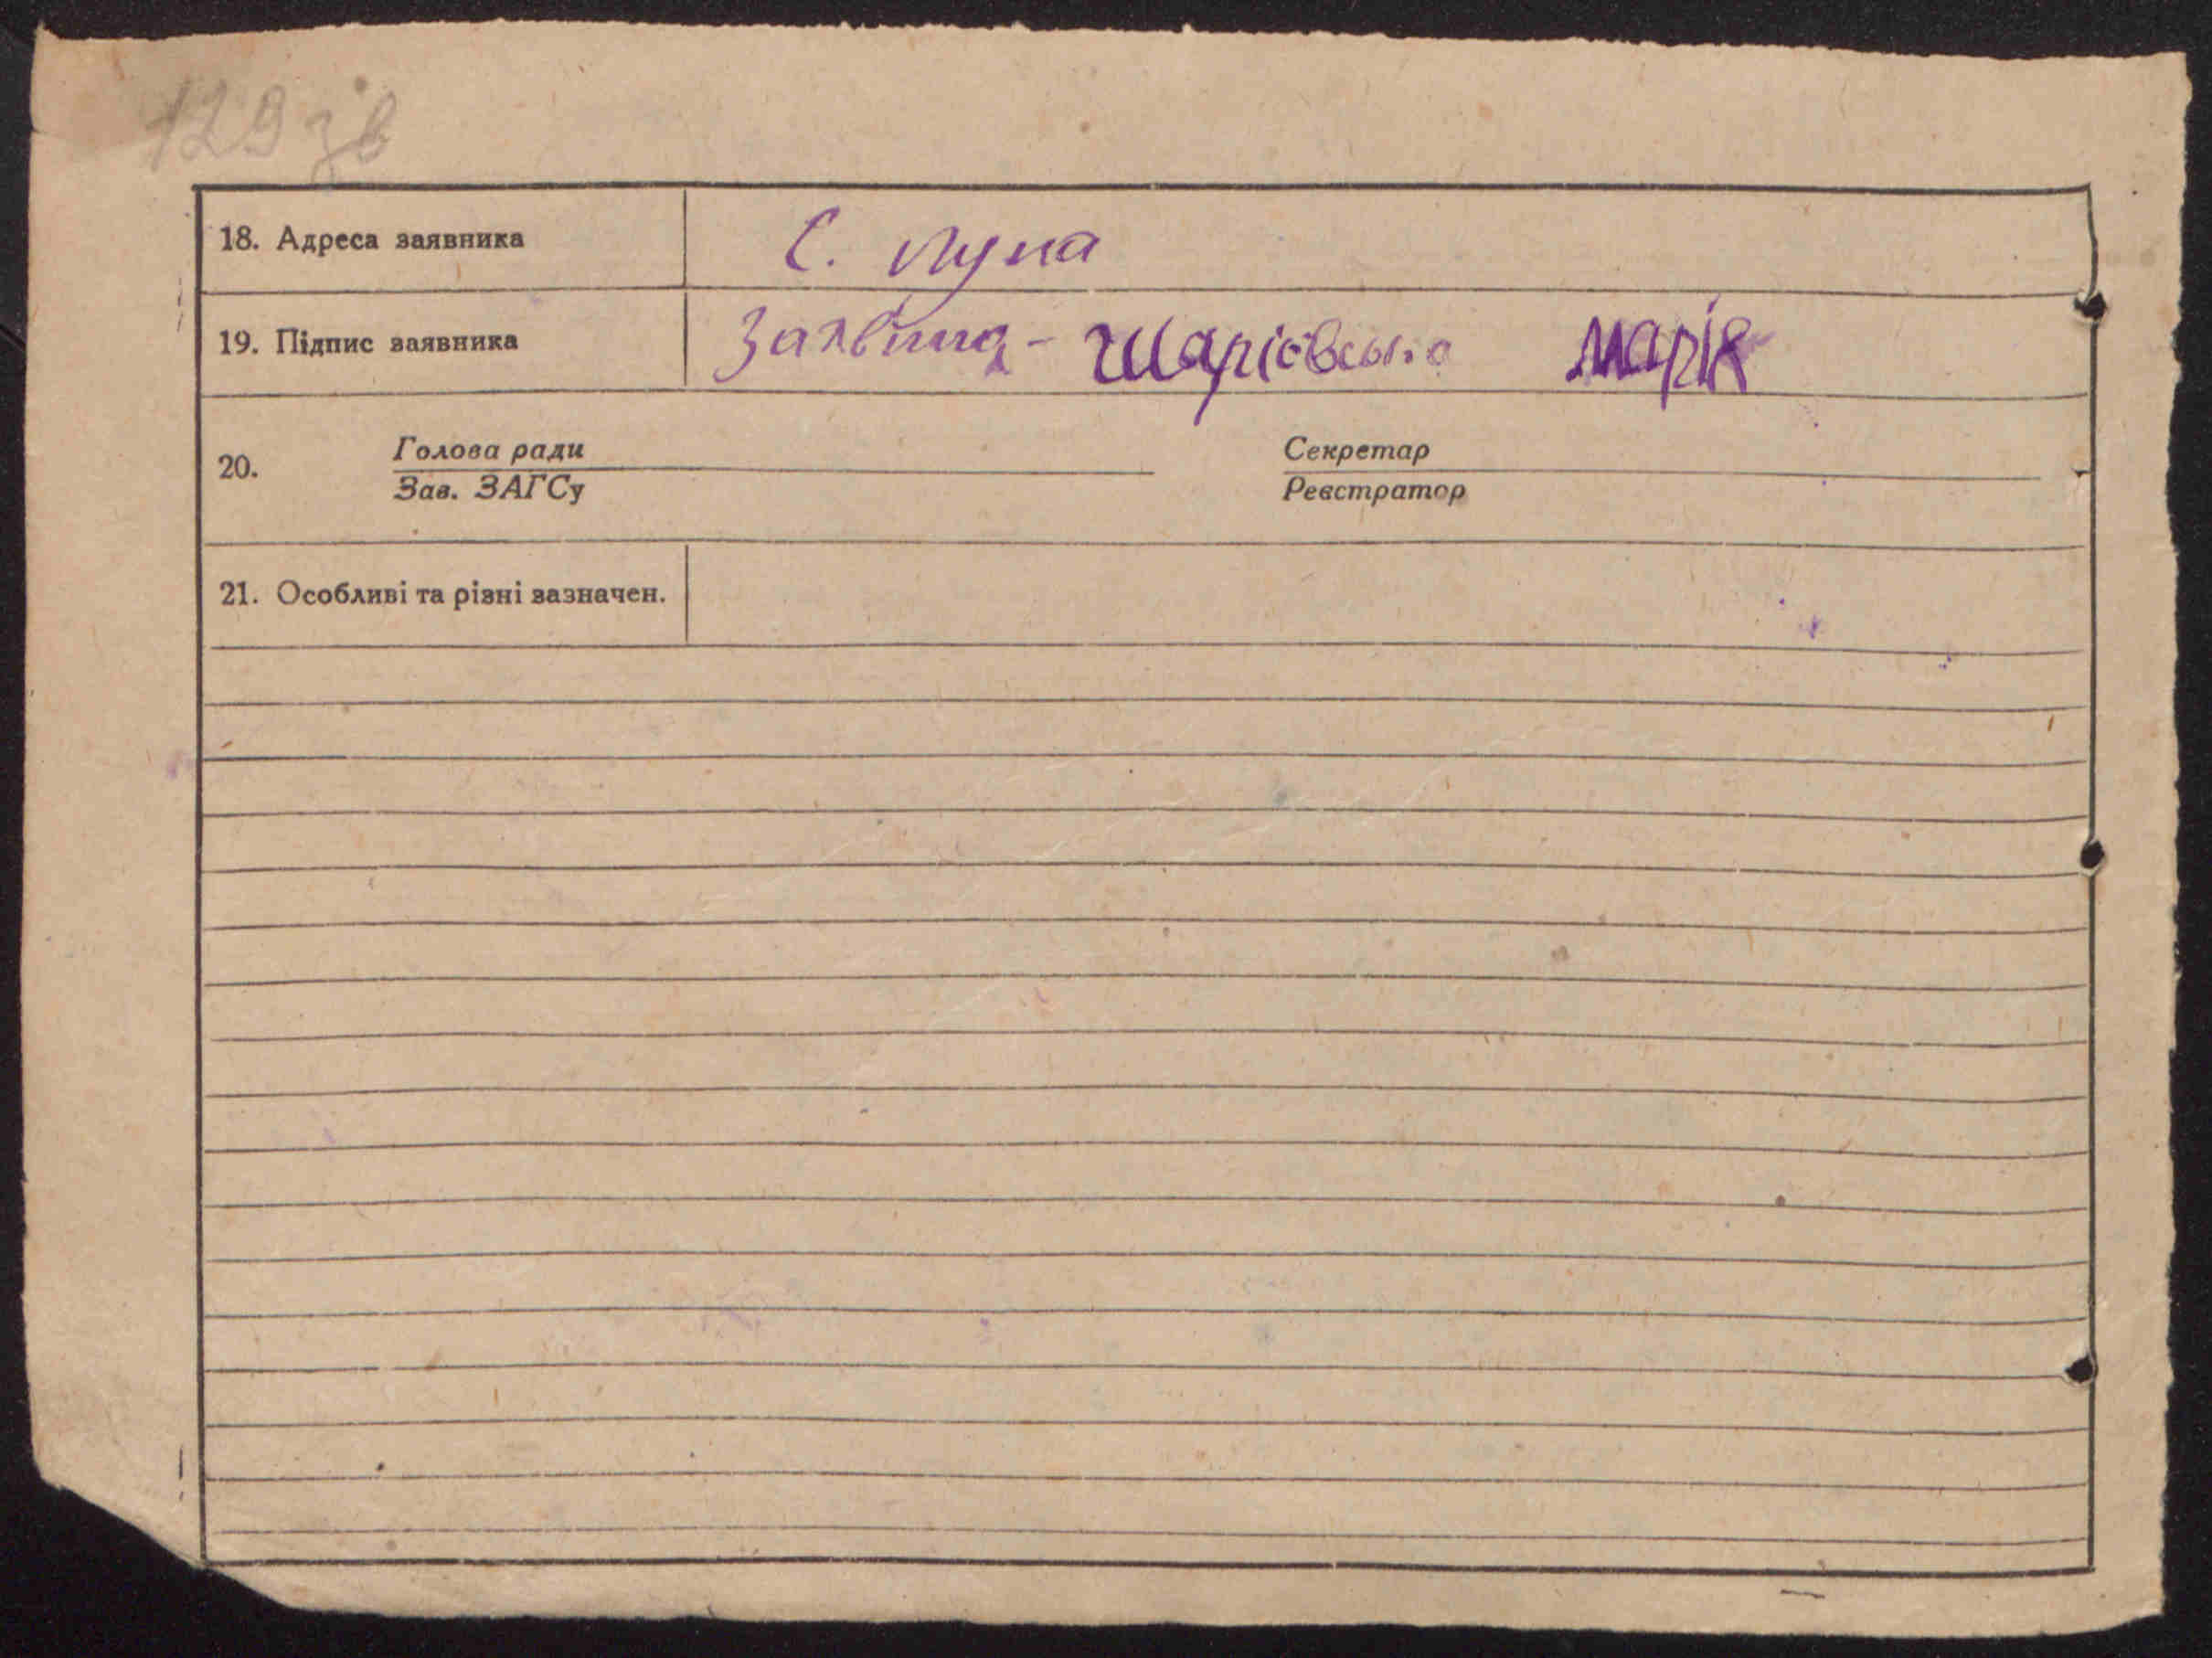 129 зв
18. Адреса заявника С. Лука
19. Підпис заявника Марія
20. Голова ради Секретар
Зав. ЗАГСу Реєстратор
21. Особливі та різні зазначен.